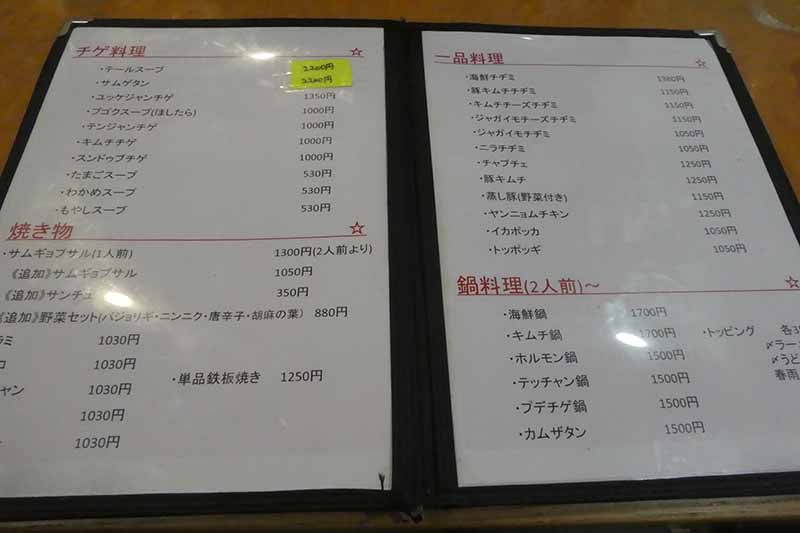 チゲ料理 ☆
・テールスープ 2200円
・サムゲタン 2200円
・ユッケジャンチゲ 1350円
・プゴクスープ(ほしたら) 1000円
・テンジャンチゲ 1000円
・キムチチゲ 1000円
・スンドゥブチゲ 1000円
・たまごスープ 530円
・わかめスープ 530円
・もやしスープ 530円
焼き物 ☆
・サムギョプサル(1人前) 1300円(2人前より)
《追加》サムギョプサル 1050円
《追加》サンチュ 350円
《追加》野菜セット(パジョリギ・ニンニク・唐辛子・胡麻の葉) 880円
ラミ 1030円
コ 1030円
チャン 1030円 ・単品鉄板焼き 1250円
1030円
1030円
一品料理 ☆
・海鮮チヂミ 1380円
・豚キムチチヂミ 1150円
・キムチチーズチヂミ 1150円
・ジャガイモチーズチヂミ 1150円
・ジャガイモチヂミ 1050円
・ニラチヂミ 1050円
・チャプチェ 1250円
・豚キムチ 1250円
・蒸し豚(野菜付き) 1150円
・ヤンニョムチキン 1250円
・イカポッカ 1050円
・トッポッギ 1050円
鍋料理(2人前)～ ☆
・海鮮鍋 1700円
・キムチ鍋 1700円 ・トッピング 各
・ホルモン鍋 1500円 〆ラー
・テッチャン鍋 1500円 〆うど
・プデチゲ鍋 1500円 春雨
・カムザタン 1500円